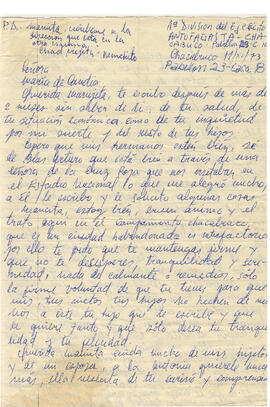 P.D. mamita, escribeme a la
dirección que está en la
otra esquina,
Chao mijita - Monchito
1ª División del Ejército
ANTOFAGASTA - CHA-
CABUCO - Pabellón 23 - C.
Chacabuco 11/ /73
Pabellón 23 - Casa 8
Señora
María de
Querida Marujita, te escribo después de más de
2 meses sin saber de ti, de tu salud, de
tu situación económica como de tu inquietud
por mi suerte y del resto de tus hijos
Espero que mis hermanos estén bien, se
de Luis Arturo que está bien a través de una
señora de la Cruz Roja que nos visitaba en
el Estadio Nacional lo que me alegró mucho,
a él le escribo y le solicito algunas cosas
Mamita, estoy bien, buen ánimo y el
trato aquí en el Campamento Chacabuco,
que es tan humano es satisfactorio
por ello te pido que te mantengas firme y
que no te desesperes, tranquilidad y sere-
nidad, nada de calmantes o remedios, solo
la firme voluntad de que tu tienes para que
mis, tus nietos tus hijos no hechen de me-
nos a este tu hijo que te escribe y que
te quiere tanto y que sólo desea tu tranqui-
lidad y tu felicidad.
Querida mamita cuida mucho de mis hijitos
y de mi esposa, a la Antonia quierela mucho
más, ella necesita de tu cariño y comprensión